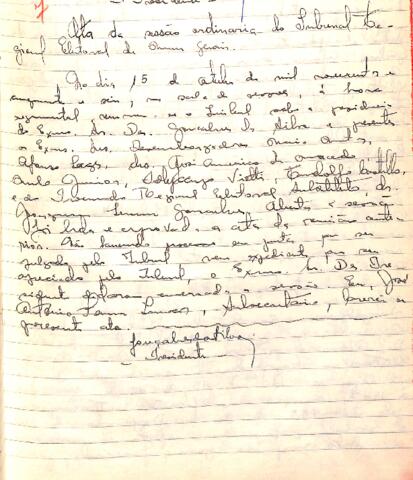 Presidente
7
Ata da sessão ordinaria do Tribunal Re-
gional Eleitoral de Minas Gerais.
No dia 15 de outubro de mil novecentos e
cinquenta e seis, na sala de sessões, à hora
regimental, reuniu-se o Tribunal sob a presidencia
do Exmo. Sr. Des. Gonçalves da Silva e presentes
os Exmos. Srs. Desembargadores
Afonso Lages, drs. José Americo de Macedo,
Paulo, Viotti,
e do Procurador Regional Eleitoral Substituto, dr.
Gonçalves. Aberta a sessão,
foi lida e aprovada a ata da reunião ante-
rior. Não havendo processos em pauta para ser
julgado pelo Tribunal nem expediente para ser
apreciado pelo Tribunal, o Exmo. Sr. Des. Pre-
sidente declarou encerrada a sessão. Eu, José
Antônio, Subsecretário, lavrei a
presente ata.
Gonçalves da Silva
Presidente